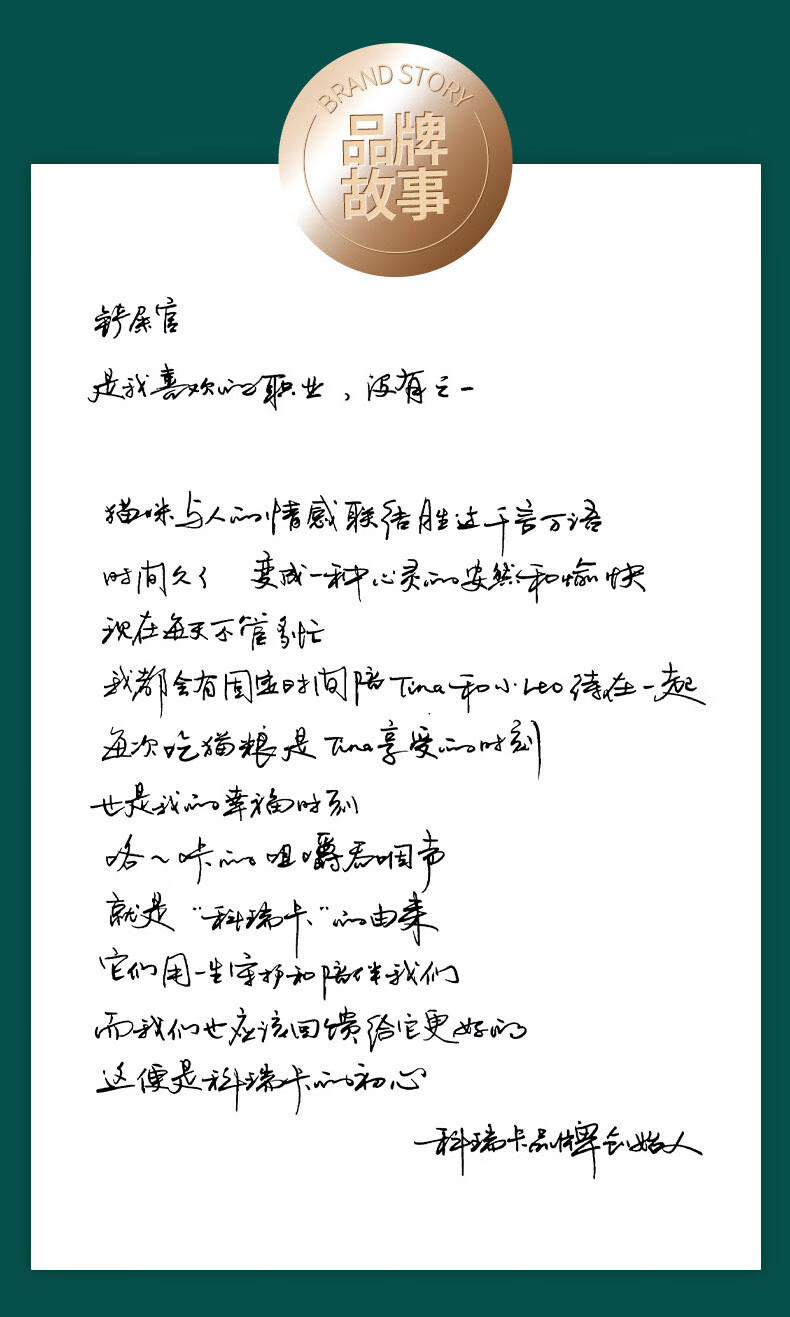 BRAND STORY
品牌
故事
铲屎官
是我喜欢的职业，没有之一
猫咪与人的情感联结胜过千言万语
时间久了 变成一种心灵的安然和愉快
现在每天不管多忙
我都会有固定时间陪Tina和小Leo待在一起
每次吃猫粮是Tina享受的时刻
也是我的幸福时刻
咯～咔的咀嚼唇咽声
就是“科瑞卡”的由来
它们用一生守护和陪伴我们
而我们也应该回馈给它更好的
这便是科瑞卡的初心
—科瑞卡品牌创始人